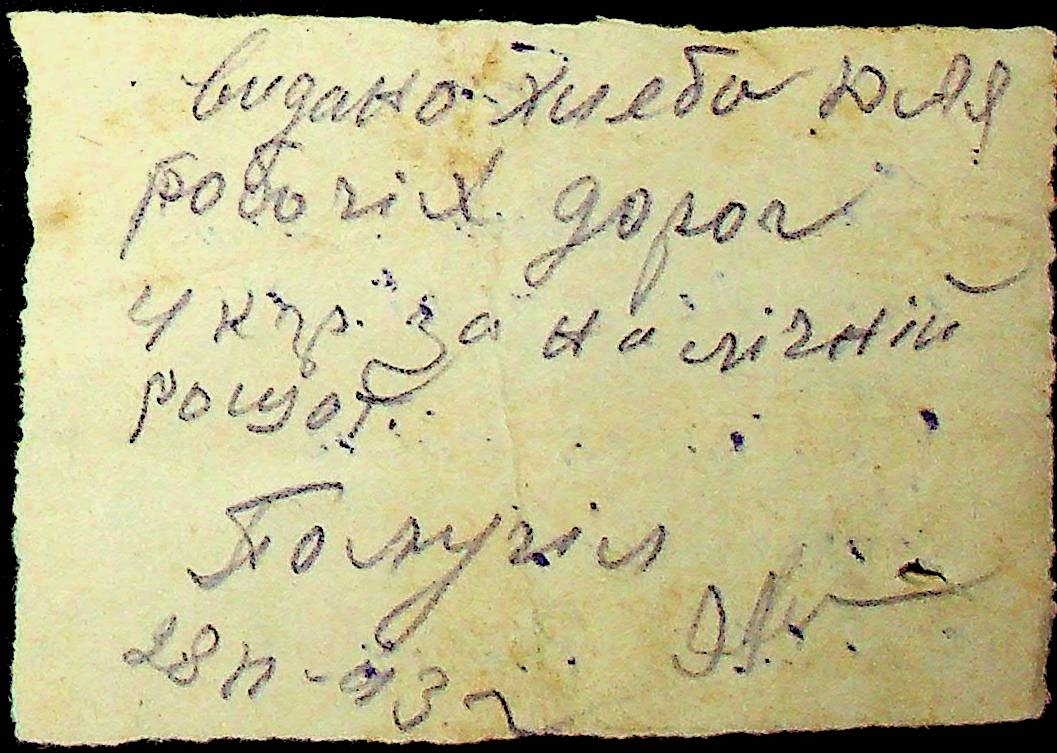 видано хлеба для
робочіх дорог
4 кгр. за налічній
рощот.
Получіл
28 -43 г